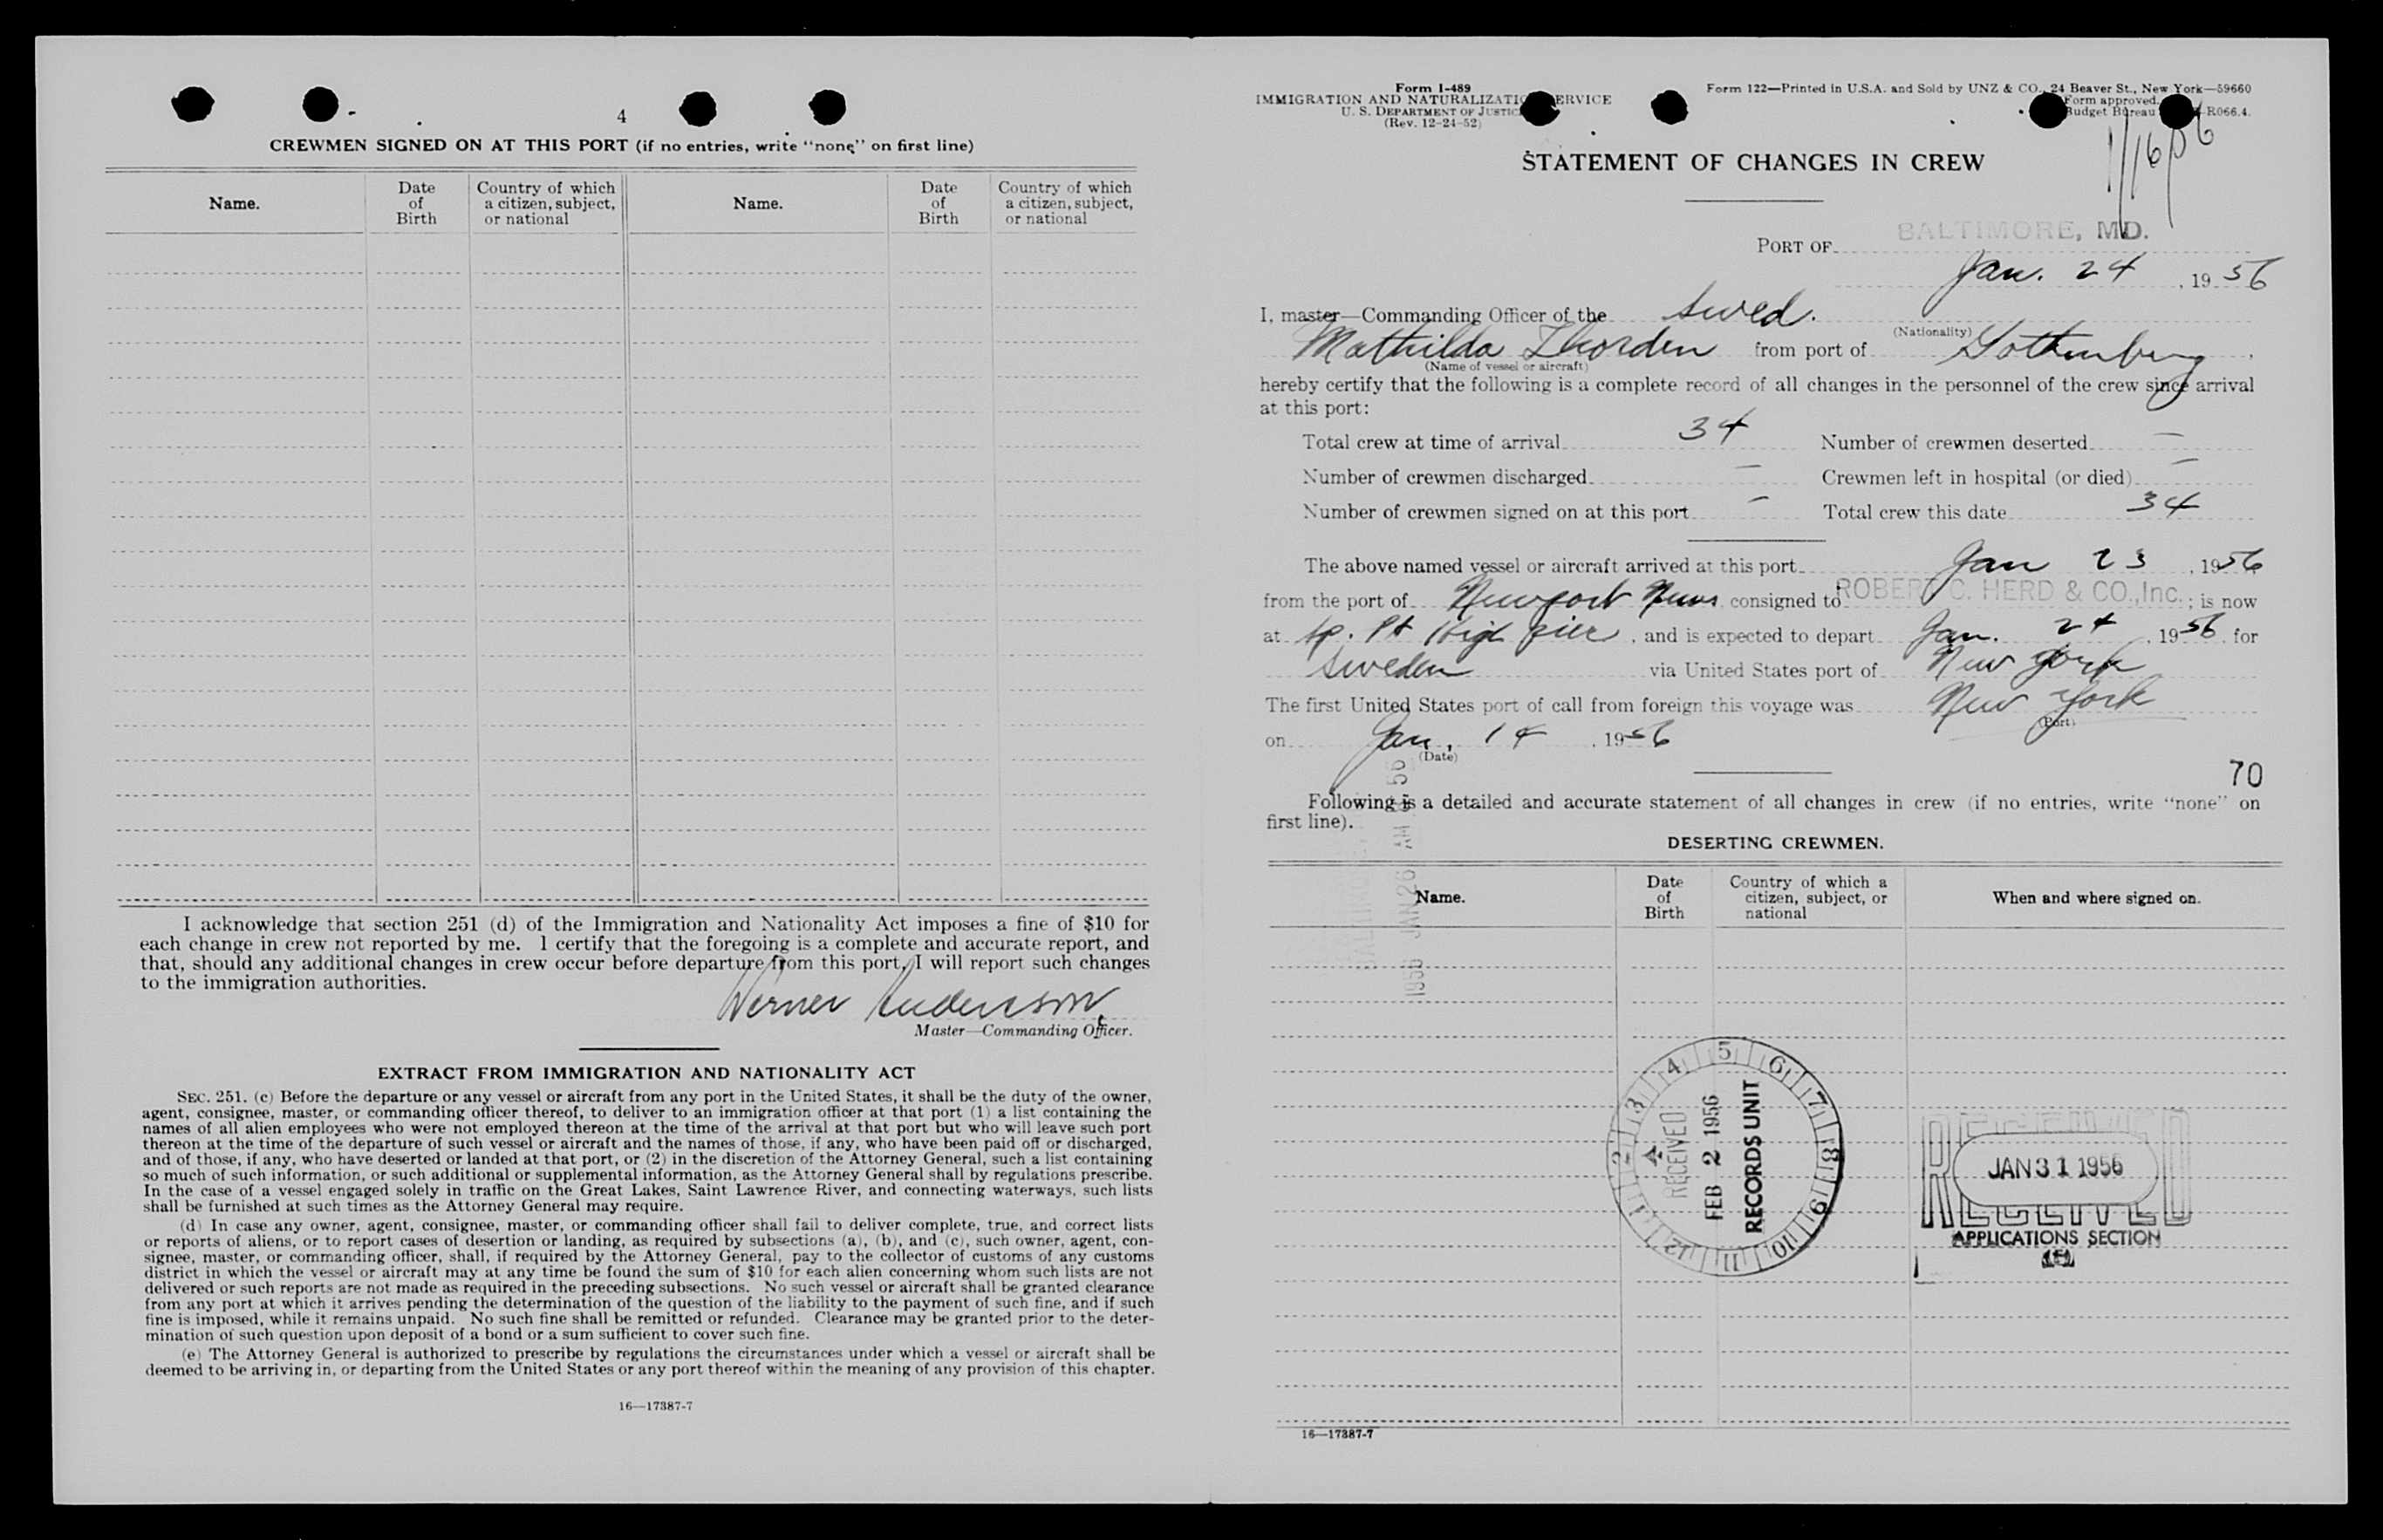 4
CREWMEN SIGNED ON AT THIS PORT (if no entries, write "none" on first line)
Name.
Date of Birth
Country of which a citizen, subject, or national
Name.
Date of Birth
Country of which a citizen, subject, or national
I acknowledge that section 251 (d) of the Immigration and Nationality Act imposes a fine of $10 for
each change in crew not reported by me. I certify that the foregoing is a complete and accurate report, and
that, should any additional changes in crew occur before departure from this port, I will report such changes
to the immigration authorities.
Werner Anderson
Master—Commanding Officer.
EXTRACT FROM IMMIGRATION AND NATIONALITY ACT
SEC. 251. (c) Before the departure or any vessel or aircraft from any port in the United States, it shall be the duty of the owner,
agent, consignee, master, or commanding officer thereof, to deliver to an immigration officer at that port (1) a list containing the
names of all alien employees who were not employed thereon at the time of the arrival at that port but who will leave such port
thereon at the time of the departure of such vessel or aircraft and the names of those, if any, who have been paid off or discharged,
and of those, if any, who have deserted or landed at that port, or (2) in the discretion of the Attorney General, such a list containing
so much of such information, or such additional or supplemental information, as the Attorney General shall by regulations prescribe.
In the case of a vessel engaged solely in traffic on the Great Lakes, Saint Lawrence River, and connecting waterways, such lists
shall be furnished at such times as the Attorney General may require.
(d) In case any owner, agent, consignee, master, or commanding officer shall fail to deliver complete, true, and correct lists
or reports of aliens, or to report cases of desertion or landing, as required by subsections (a), (b), and (c), such owner, agent, con-
signee, master, or commanding officer, shall, if required by the Attorney General, pay to the collector of customs of any customs
district in which the vessel or aircraft may at any time be found the sum of $10 for each alien concerning whom such lists are not
delivered or such reports are not made as required in the preceding subsections. No such vessel or aircraft shall be granted clearance
from any port at which it arrives pending the determination of the question of the liability to the payment of such fine, and if such
fine is imposed, while it remains unpaid. No such fine shall be remitted or refunded. Clearance may be granted prior to the deter-
mination of such question upon deposit of a bond or a sum sufficient to cover such fine.
(e) The Attorney General is authorized to prescribe by regulations the circumstances under which a vessel or aircraft shall be
deemed to be arriving in, or departing from the United States or any port thereof within the meaning of any provision of this chapter.
16—17387-7
Form I-489
IMMIGRATION AND NATURALIZATION SERVICE
U. S. DEPARTMENT OF JUSTICE
(Rev. 12-24-52)
Form 122—Printed in U.S.A. and Sold by UNZ & CO., 24 Beaver St., New York—59660
Form approved.
Budget Bureau R066.4.
1/16/56
STATEMENT OF CHANGES IN CREW
PORT OF BALTIMORE, MD.
Jan. 24, 1956
I, master—Commanding Officer of the Swed.
(Nationality)
Mathilda Thorden from port of Gothenburg,
(Name of vessel or aircraft)
hereby certify that the following is a complete record of all changes in the personnel of the crew since arrival
at this port:
Total crew at time of arrival 34 Number of crewmen deserted —
Number of crewmen discharged — Crewmen left in hospital (or died) —
Number of crewmen signed on at this port — Total crew this date 34
The above named vessel or aircraft arrived at this port Jan 23, 1956
from the port of Newport News consigned to ROBERT C. HERD & CO., Inc.; is now
at Sp. Pt High pier, and is expected to depart Jan. 24, 1956 for
Sweden via United States port of New York
The first United States port of call from foreign this voyage was New York
(Port)
on Jan. 14, 1956
(Date)
70
Following is a detailed and accurate statement of all changes in crew (if no entries, write "none" on
first line).
DESERTING CREWMEN.
Name.
Date of Birth
Country of which a citizen, subject, or national
When and where signed on.
1956 JAN 26 AM
RECEIVED
FEB 2 1956
RECORDS UNIT
1 2 3 4 5 6 7 8 9 10 11 12
RECEIVED
JAN 31 1956
APPLICATIONS SECTION
16—17387-7